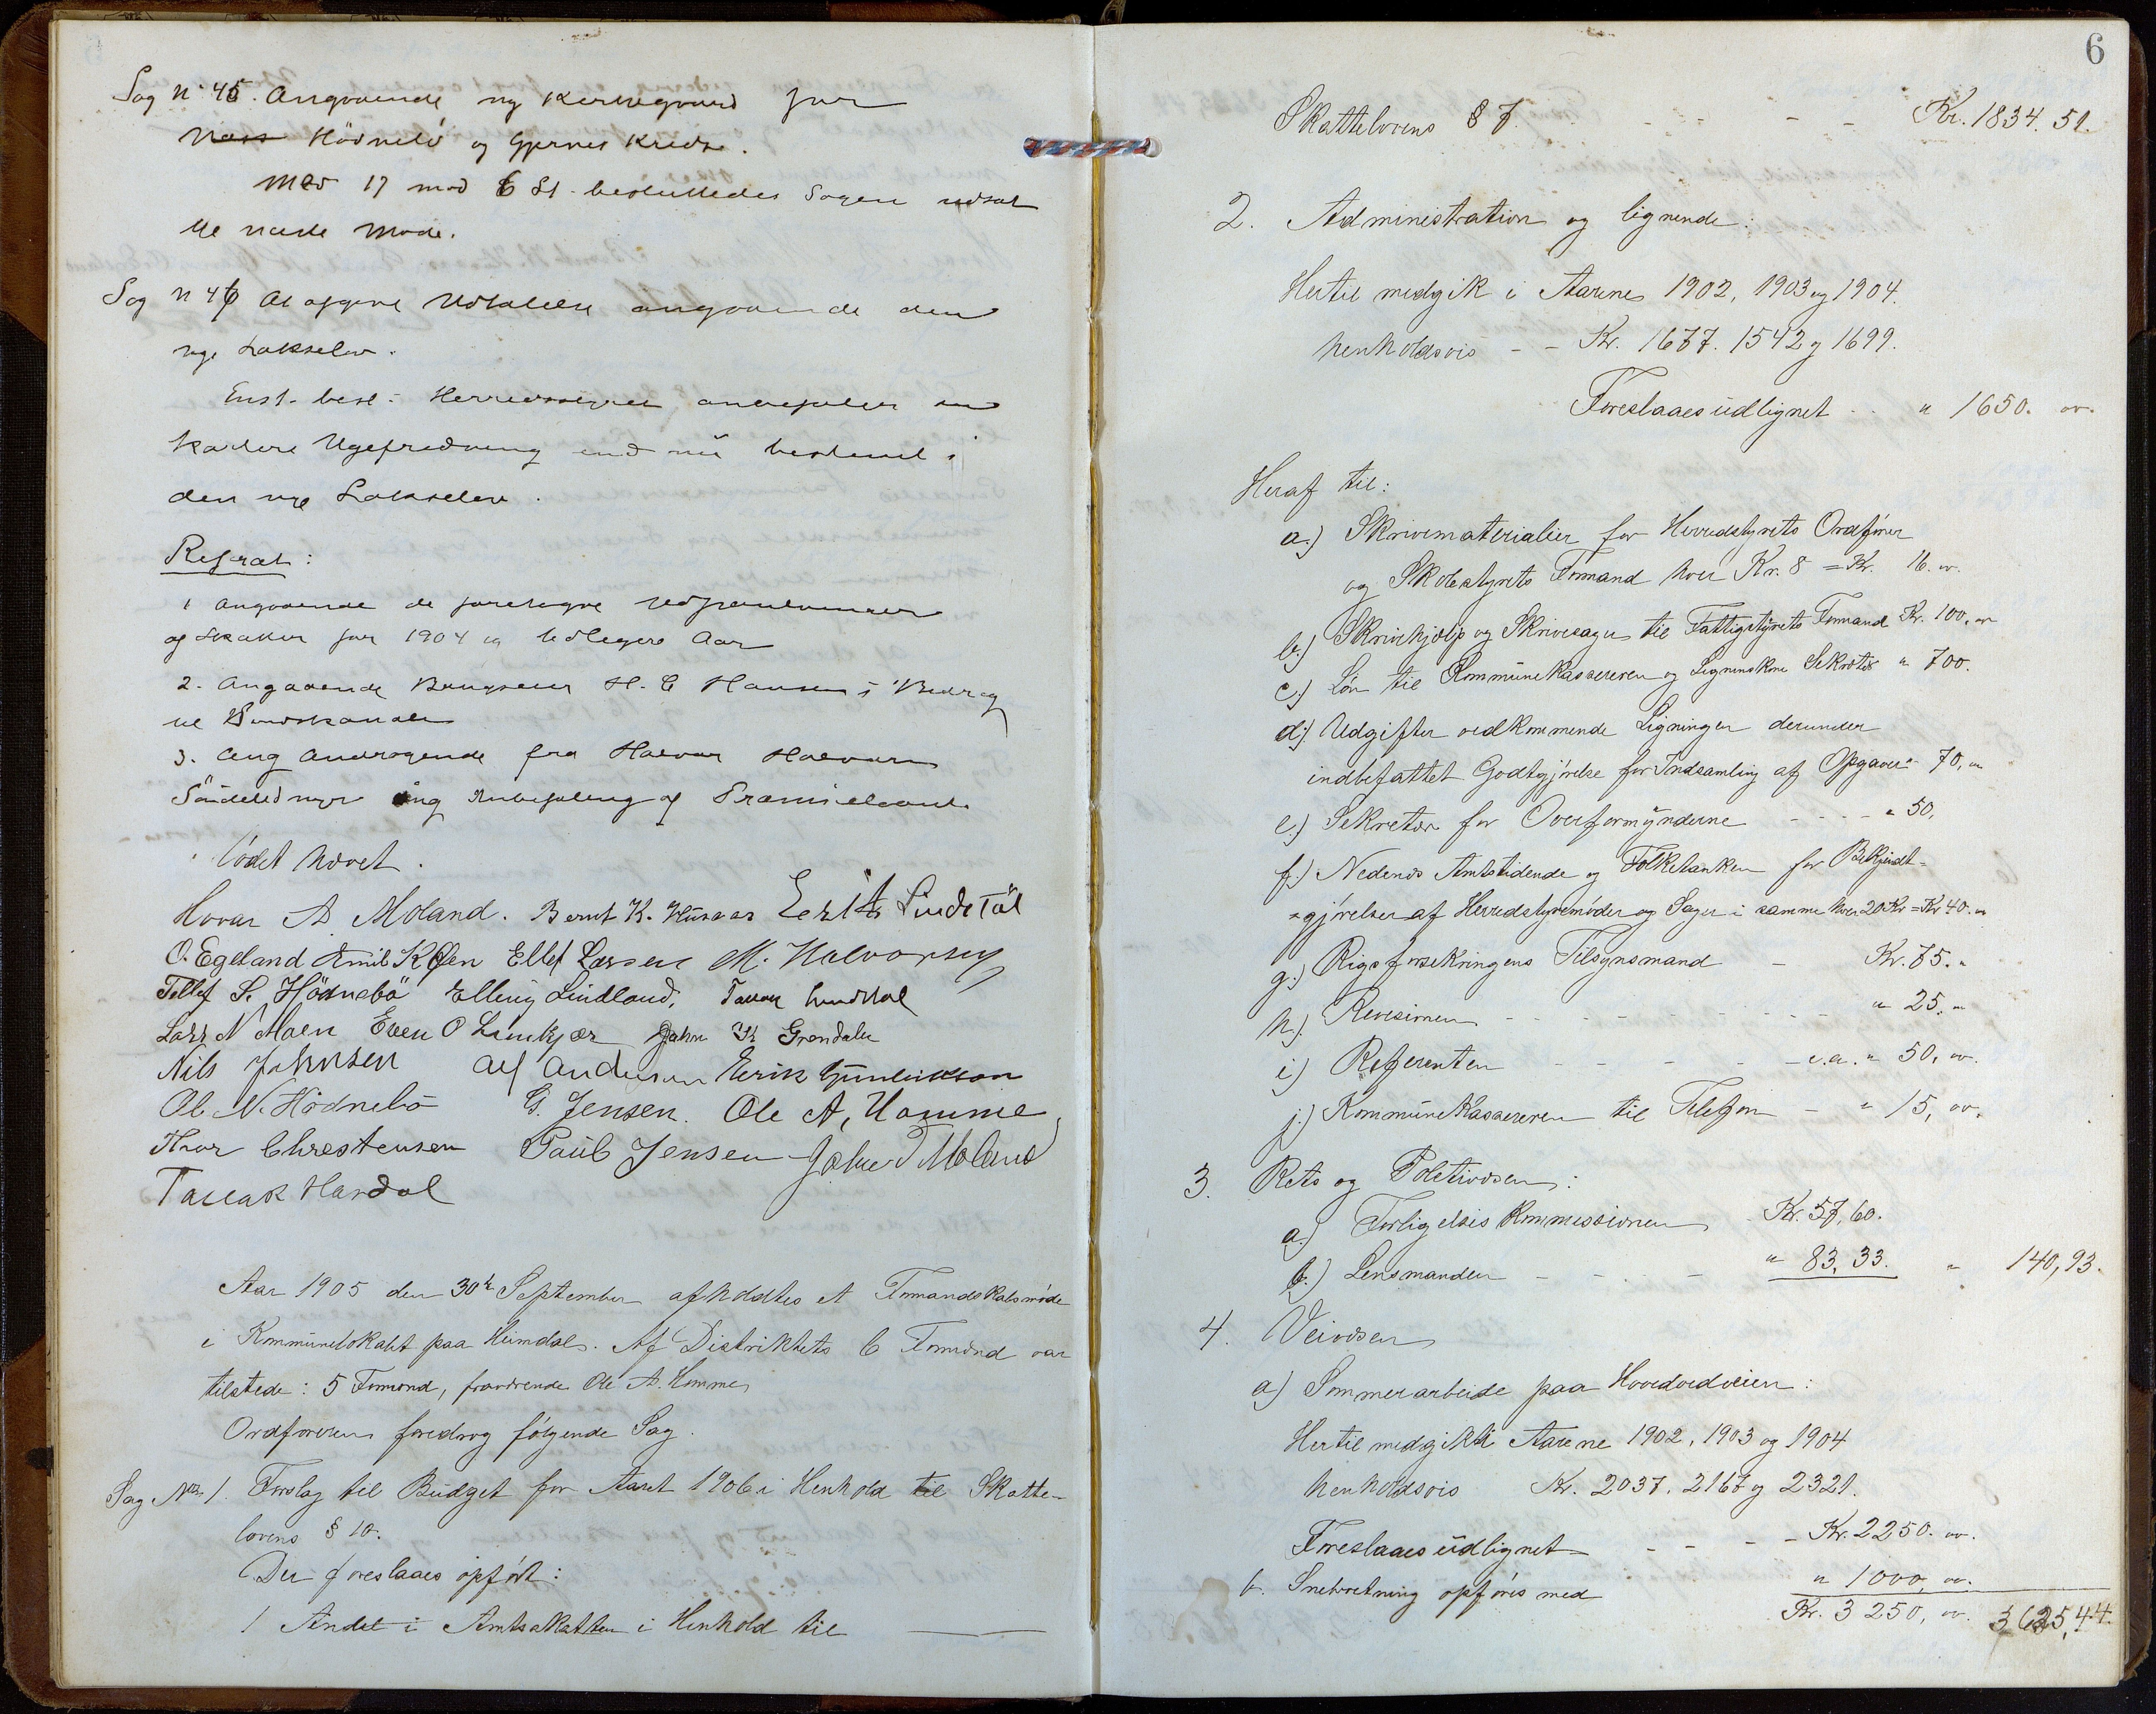 Sag N. 45. Angaaende ny Kirkegaard for
Vass Hödnebö og Gjernes Kreds.
Med 17 mod 6 St. besluttedes Sagen udsat
til næste Møde.
Sag N 46 At afgive Udtalelse angaaende den
nye Lakselov.
Enst. besl: Herredsstyret anbefaler en
kortere Ugefredning end nu bestemt i
den nye Lakselov.
Referat:
1 Angaaende de foretagne Udpantninger
af Skatter for 1904 og tidligere Aar
2. Angaaende Brugseier H. C Hansens Bidrag
til Sundskanalen
3. Ang Andragende fra Halvor Halvorsen
Söndeled myr ang Anbefaling af Præmielaan
Mödet hævet.
Hovar A. Moland. Bernt K. Husaas Eerik Lindstöl
O. Egeland Emil K Olsen Ellef Larsen M. Halvorsen
Tellef S. Hödnebö Elling Lindland, Tallak Lindstöl
Lars N Moen Even O Limkjær John K Grendalen
Nils Johnsen Alf Andersen Eerik Gundersson
Ol. N. Hödnebö G. Jensen. Ole A, Hamme
Thor Chrestensen Paul Jensen Gjalme T Moland
Tallak Hardal
Aar 1905 den 30te September afholdtes et Formandskabsmøde
i Kommunelokalet paa Heimdal. Af Distriktets 6 Formænd var
tilstede: 5 Formænd, fraværende Ole A. Hommes
Ordføreren foredrog følgende Sag.
Sag No. 1. Forslag til Budget for Aaret 1906 i Henhold til Skatte-
lovens § 10.
Der foreslaaes opført:
1 Andel i Amtsskatten i Henhold til
6
Skattelovens § 7. - - - - Kr. 1834. 51.
2. Administration og lignende:
Hertil medgik i Aarene 1902, 1903 og 1904.
henholdsvis - - Kr. 1677. 1542 og 1699.
Foreslaaes udlignet - - " 1650. oo.
Heraf til:
a.) Skrivematerialier for Herredstyrets Ordfører
og Skolestyrets Formand hver Kr. 8 = Kr. 16. oo.
b.) Skrivehjælp og Skrivesager til Fattigstyrets Formand Kr. 100. oo
c.) Løn til Kommunekassereren og Ligningskom Sekretær " 700.
d.) Udgifter vedkommende Ligningen derunder
indbefattet Godtgjørelse for Indsamling af Opgaver " 70, "
e.) Sekretær for Overformynderne - - - - " 50,
f.) Nedenes Amtstidende og Folketanken for Bekjendt-
=gjørelser af Herredstyremøder og Sager i samme hver 20 Kr = Kr 40. "
g.) Rigsforsikringens Tilsynsmand - Kr. 75. "
h.) Revisionen - - - - - - - - " 25. "
i) Referenten - - - - - c.a. " 50, oo.
j.) Kommunekassereren til Telefon - " 15, oo.
3. Rets og Politivæsen:
a.) Forligelseskommissionen Kr. 57, 60.
b.) Lensmanden - - - - " 83, 33. " 140,93.
4. Veivæsen
a) Sommerarbeide paa Hovedveien:
Hertil medgik i Aarene 1902, 1903 og 1904
henholdsvis Kr. 2037. 2167 og 2321.
Foreslaaes udlignet - - - - Kr. 2250. oo.
b. Snebrøtning opføres med " 1000, oo.
Kr. 3 250, oo. 3625,44.